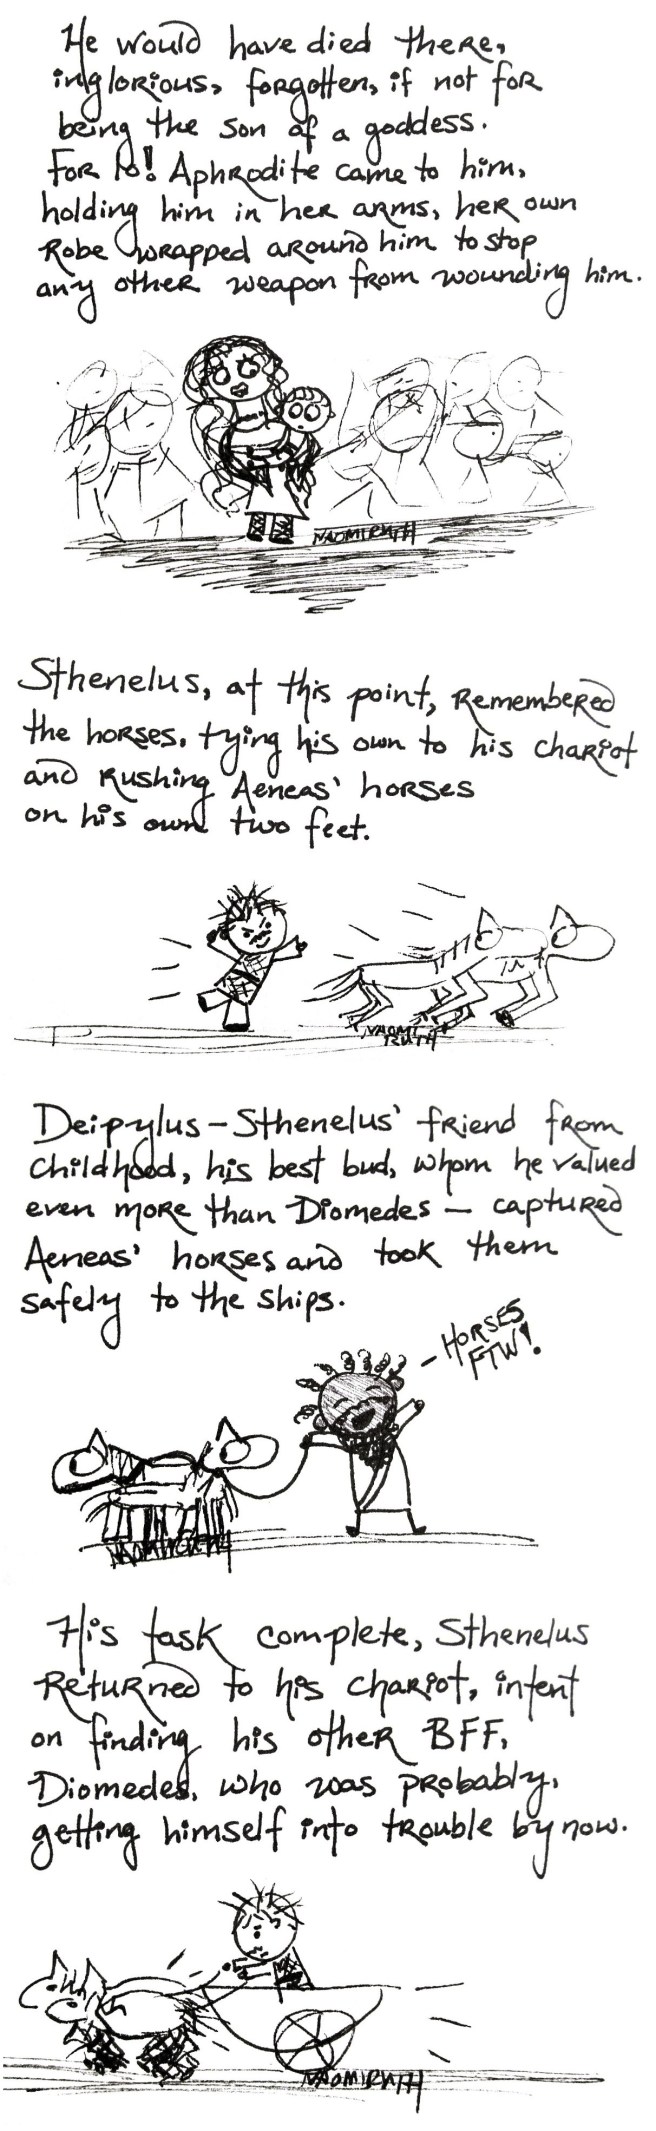 He would have died there,
inglorious, forgotten, if not for
being the son of a goddess.
For lo! Aphrodite came to him,
holding him in her arms, her own
Robe wrapped around him to stop
any other weapon from wounding him.
NAOMI RUTH
Sthenelus, at this point, Remembered
the horses, tying his own to his chariot
and Rushing Aeneas' horses
on his own two feet.
NAOMI
RUTH
Deipylus – Sthenelus' friend from
childhood, his best bud, whom he valued
even more than Diomedes – captured
Aeneas' horses and took them
safely to the ships.
- HORSES
FTW!
NAOMI RUTH
His task complete, Sthenelus
Returned to his chariot, intent
on finding his other BFF,
Diomedes, who was probably,
getting himself into trouble by now.
NAOMI RUTH